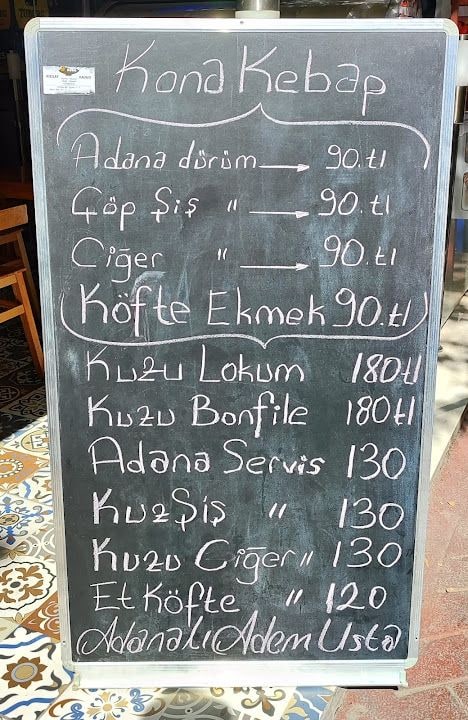 Kona Kebap
Adana dürüm → 90.tl
Çöp Şiş " → 90.tl
Ciğer " → 90.tl
Köfte Ekmek 90.tl
Kuzu Lokum 180tl
Kuzu Bonfile 180tl
Adana Servis 130
Kuz Şiş " 130
Kuzu Ciğer " 130
Et Köfte " 120
Adanalı Adem Usta